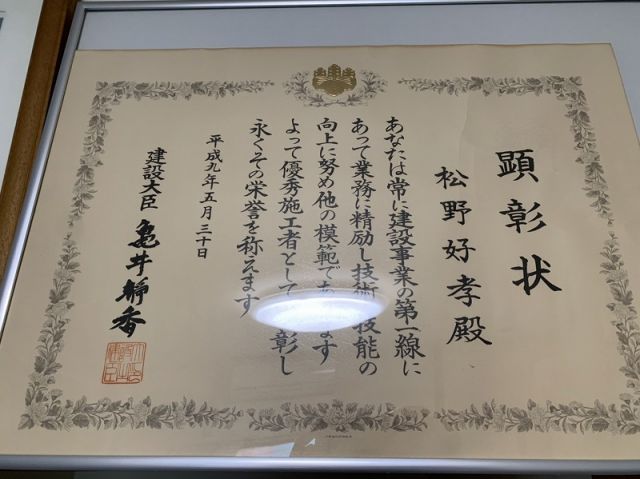 顕彰状
松野好孝殿
あなたは常に建設事業の第一線に
あって業務に精励し技術 技能の
向上に努め他の模範であ ます
よって優秀施工者として 彰し
永くその栄誉を称えます
平成九年五月三十日
建設大臣 亀井静香